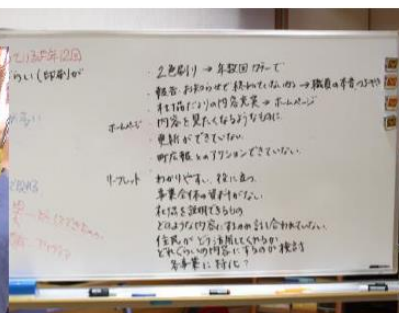 ているよ年12回
らい(印刷が
・2色刷り → 年数回カラーで
・報告・お知らせで終わっていないか → 職員の本音つぶやき
・社協だよりの内容充実 → ホームページ
ホームページ ・内容を見たくなるようなものに
・更新ができていない
・町広報とのアクションできていない
リーフレット わかりやすい、役に立つ
事業全体の資料がない
社協を説明できるもの
どのような内容にするのか話し合われていない
住民がどう活用してくれるか
どれくらいの内容にするのか検討
各事業に特化?